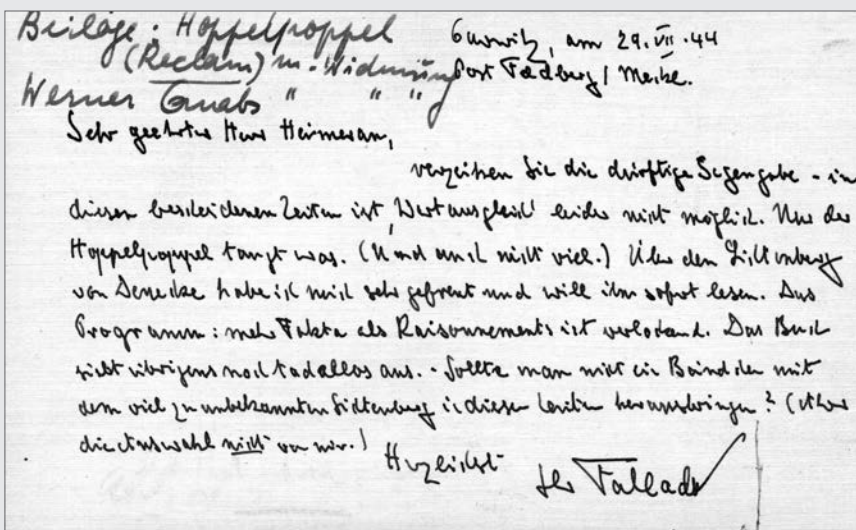 Beilage: Hoppelpoppel
(Reclam) m. Widmung
Werner Quabs " " "
Carwitz, am 29. VII. 44
Post Feldberg / Meckl.
Sehr geehrter Herr Heimeran,
verzeihen Sie die dürftige Gegengabe - in
diesen bescheidenen Zeiten ist ‚Wertausgleich' leider nicht möglich. Nur der
Hoppelpoppel taugt was. (Und auch nicht viel.) Über den Lichtenberg
von Denecke habe ich mich sehr gefreut und will ihn sofort lesen. Das
Programm: mehr Fakta als Raisonnements ist verlockend. Das Buch
sieht übrigens noch tadellos aus. - Sollte man nicht ein Bändchen mit
dem viel zu unbekannten Lichtenberg in diesen Zeiten herausbringen? (Aber
die Auswahl nicht von mir.)
Herzlichst
Ihr Fallada